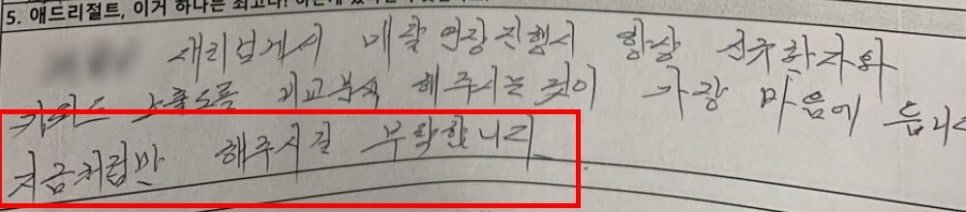 5. 애드리절트, 이거 하나는 최고다!
대리님께서 매달 연장진행시 항상 신규환자와
키워드 노출도를 비교분석 해주시는 것이 가장 마음에 듭니다
지금처럼만 해주시길 부탁합니다.